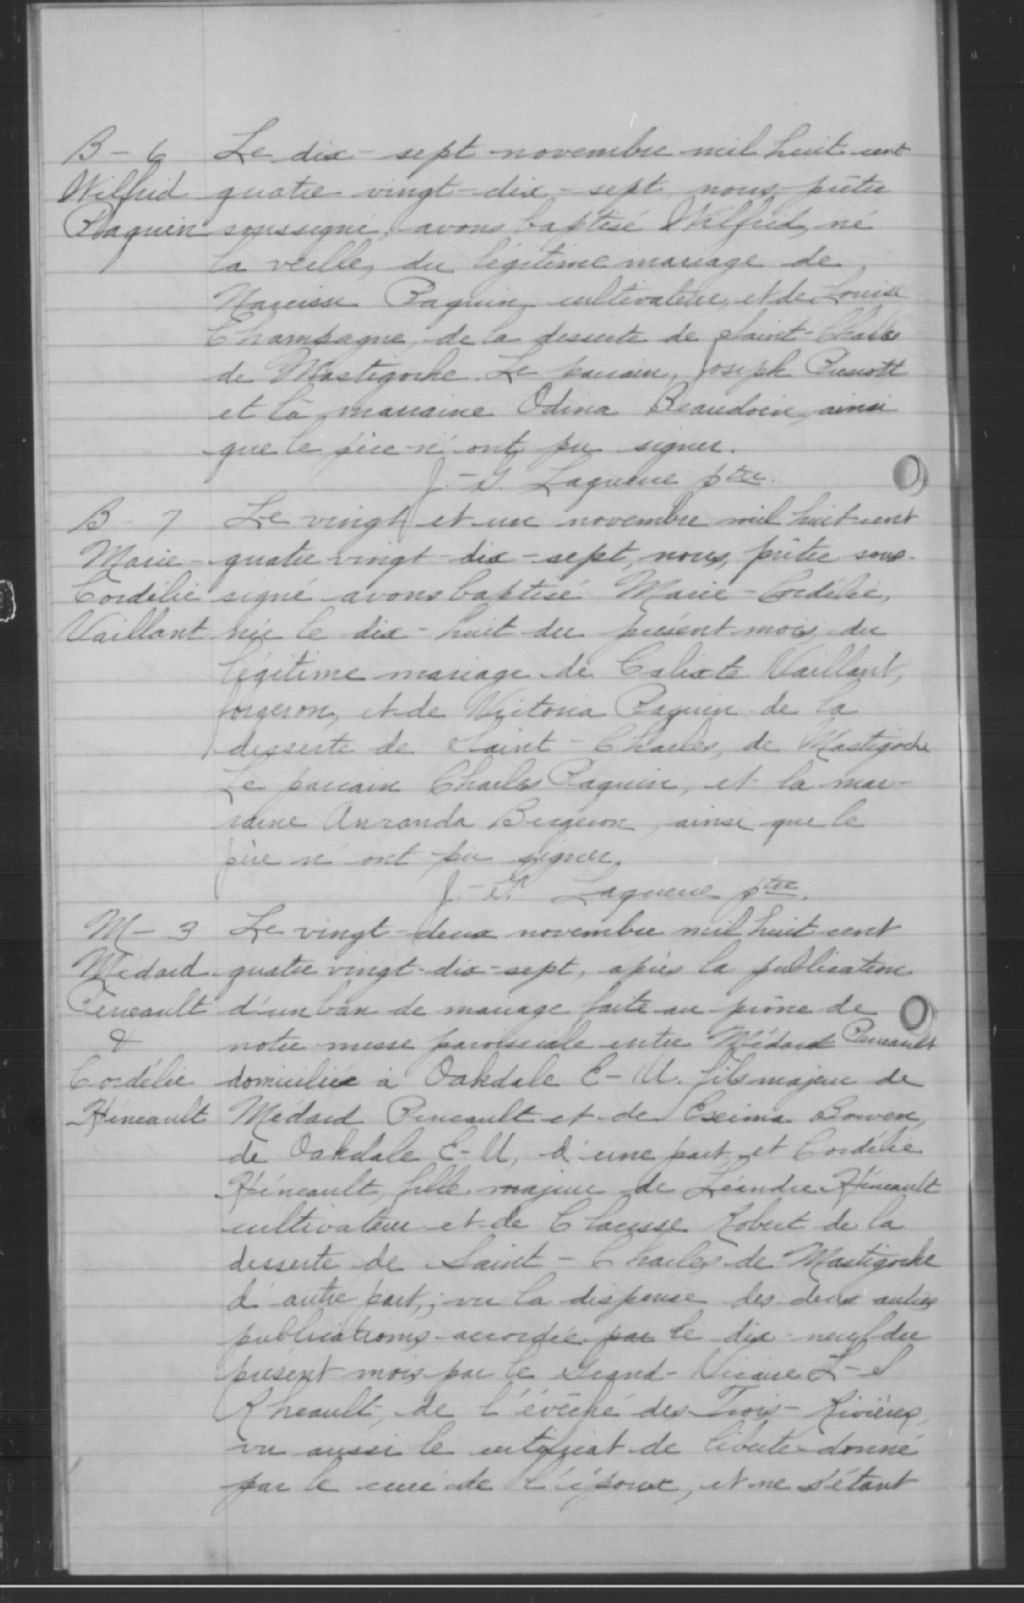 B - 6 Le dix-sept novembre mil huit cent
Wilfrid quatre-vingt-dix-sept, nous, prêtre
Paquin soussigné, avons baptisé Wilfrid, né
la veille, du légitime mariage de
Narcisse Paquin, cultivateur, et de Louise
Champagne, de la desserte de Saint-Charles
de Mastigoche. Le parrain, Joseph
et la marraine Odina Beaudoin, ainsi
que le père n'ont pu signer.
Laquerre ptre.
B - 7 Le vingt et un novembre mil huit cent
Marie- quatre vingt-dix-sept, nous, prêtre sous-
Cordélie signé avons baptisé Marie-Cordélie,
Vaillant née le dix-huit du présent mois du
légitime mariage de Calixte Vaillant,
forgeron, et de Victoria Paquin de la
desserte de Saint-Charles, de Mastigoche
Le parrain Charles Paquin, et la mar-
raine Bergeron, ainsi que le
père n'ont pu signer.
Laquerre ptre.
M - 3 Le vingt-deux novembre mil huit cent
Médard quatre vingt-dix-sept, après la publication
Peneault d'un ban de mariage faite au prône de
& notre messe paroissiale entre Médard Peneault
Cordélie domiciliée à Oakdale E-U. fils majeur de
Héneault Médard Peneault et de Bowen,
de Oakdale E-U, d'une part, et Cordélie
Héneault, fille majeure de Léandre Héneault
cultivateur et de Robert de la
desserte de Saint-Charles de Mastigoche
d'autre part; vu la dispense des deux autres
publications accordée par le dix-neuf du
présent mois par le Grand-Vicaire L-S
Rheault, de l'évêché des Trois-Rivières,
vu aussi le certificat de liberté donné
par le curé de l'époux, et ne s'étant